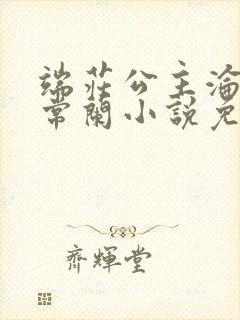 端莊公主淪
常闌小說免
齊輝堂